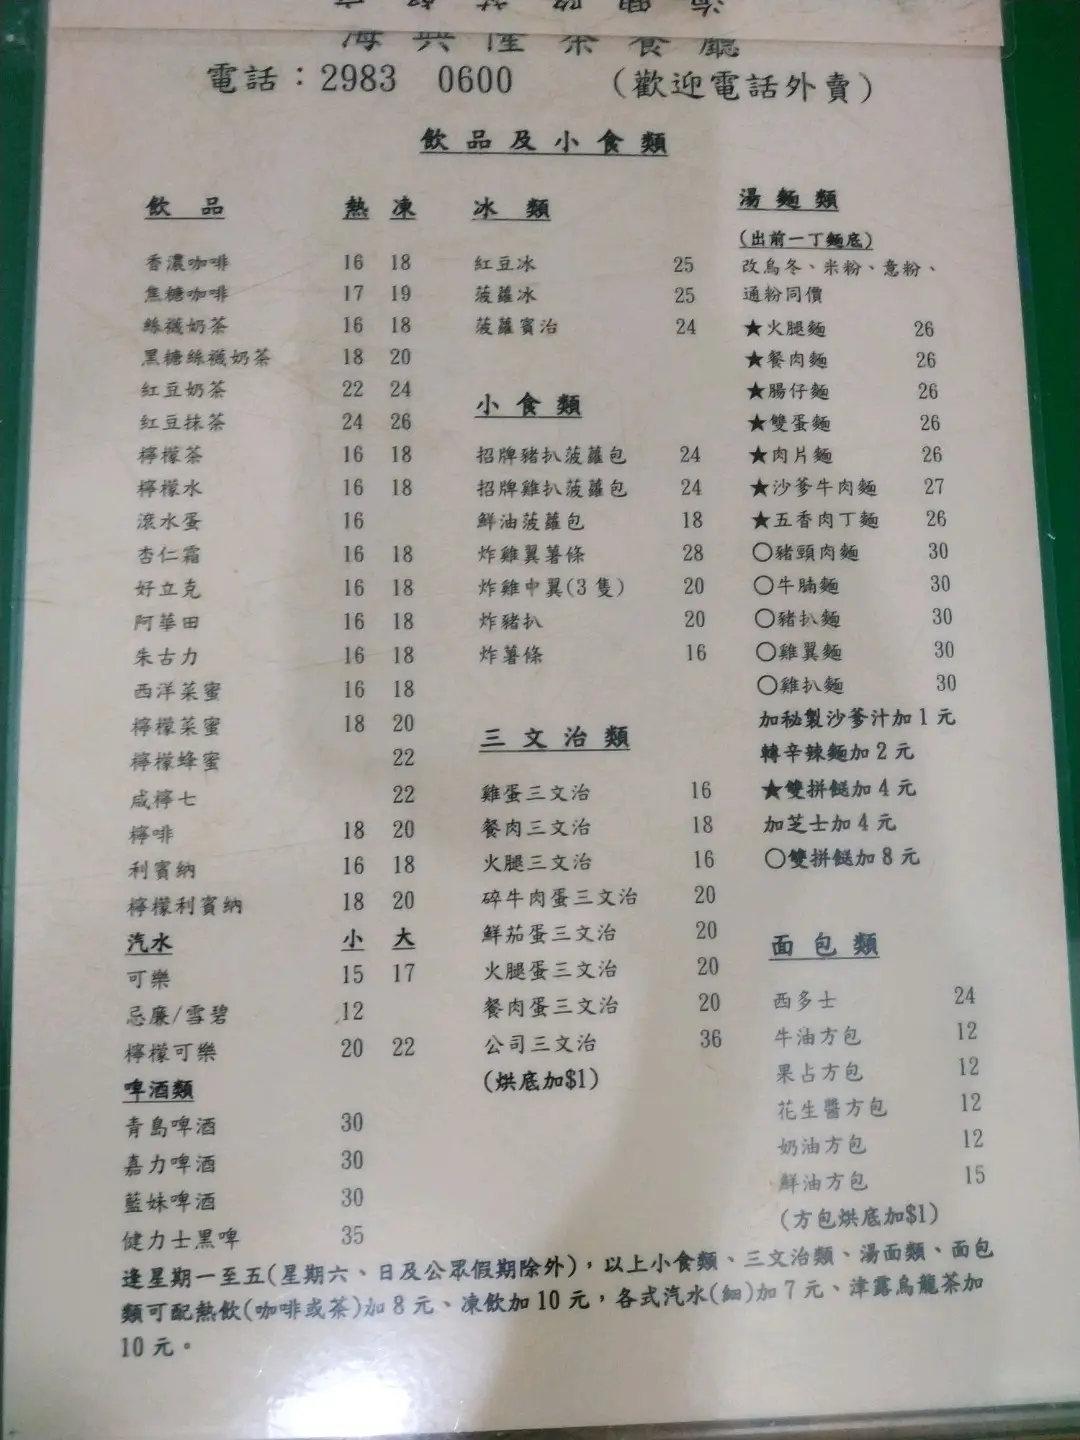 海興隆茶餐廳
電話：2983 0600 （歡迎電話外賣）
飲品及小食類
飲品 熱 凍
香濃咖啡 16 18
焦糖咖啡 17 19
絲襪奶茶 16 18
黑糖絲襪奶茶 18 20
紅豆奶茶 22 24
紅豆抹茶 24 26
檸檬茶 16 18
檸檬水 16 18
滾水蛋 16
杏仁霜 16 18
好立克 16 18
阿華田 16 18
朱古力 16 18
西洋菜蜜 16 18
檸檬菜蜜 18 20
檸檬蜂蜜 22
咸檸七 22
檸啡 18 20
利賓納 16 18
檸檬利賓納 18 20
汽水 小 大
可樂 15 17
忌廉/雪碧 12
檸檬可樂 20 22
啤酒類
青島啤酒 30
嘉力啤酒 30
藍妹啤酒 30
健力士黑啤 35
冰類
紅豆冰 25
菠蘿冰 25
菠蘿賓治 24
小食類
招牌豬扒菠蘿包 24
招牌雞扒菠蘿包 24
鮮油菠蘿包 18
炸雞翼薯條 28
炸雞中翼(3隻) 20
炸豬扒 20
炸薯條 16
三文治類
雞蛋三文治 16
餐肉三文治 18
火腿三文治 16
碎牛肉蛋三文治 20
鮮茄蛋三文治 20
火腿蛋三文治 20
餐肉蛋三文治 20
公司三文治 36
(烘底加$1)
湯麵類
(出前一丁麵底)
改烏冬、米粉、意粉、
通粉同價
★火腿麵 26
★餐肉麵 26
★腸仔麵 26
★雙蛋麵 26
★肉片麵 26
★沙爹牛肉麵 27
★五香肉丁麵 26
○豬頸肉麵 30
○牛腩麵 30
○豬扒麵 30
○雞翼麵 30
○雞扒麵 30
加秘製沙爹汁加1元
轉辛辣麵加2元
★雙拼餸加4元
加芝士加4元
○雙拼餸加8元
面包類
西多士 24
牛油方包 12
果占方包 12
花生醬方包 12
奶油方包 12
鮮油方包 15
(方包烘底加$1)
逢星期一至五(星期六、日及公眾假期除外)，以上小食類、三文治類、湯面類、面包
類可配熱飲(咖啡或茶)加8元、凍飲加10元，各式汽水(細)加7元、津露烏龍茶加
10元。